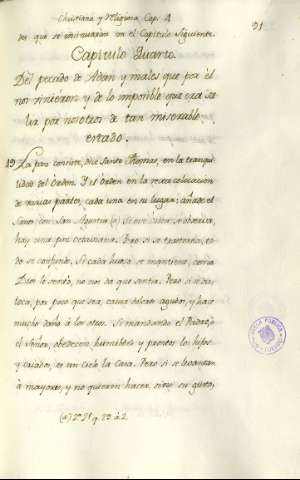 Christiana y Religiosa Cap. 4
91
los que se continuarán en el Capitulo Siguiente.
Capitulo Quarto.
Del pecado de Adan y males que por él
nos viniéron y de lo imposible que era sa
lir por nosotros de tan miserable
estado.
19 La paz consiste, dice Santo Thomas, en la tranqui
lidad del Orden. Y el Orden en la recta colocacion
de muchas partes, cada una en su lugar; añade el
Santo con San Agustin (a) Si este orden se observa,
hay una paz octaviana. Pero si se trastorna, to
do se confunde. Si cada hueso se mantiene, como
Dios lo sentó, no nos da que sentir. Pero si se dis
loca, por poco que sea, causa dolores agudos, y hace
mucho daño à los otros. Si mandando el Padre, ò
el Señor, obedecen humildes y prontos los hijos
y criados, es un Cielo la Casa. Pero si se levantan
à mayores, y no quieren hacer sino su gusto,
(a) 2ª 2ª q. 29 à 2